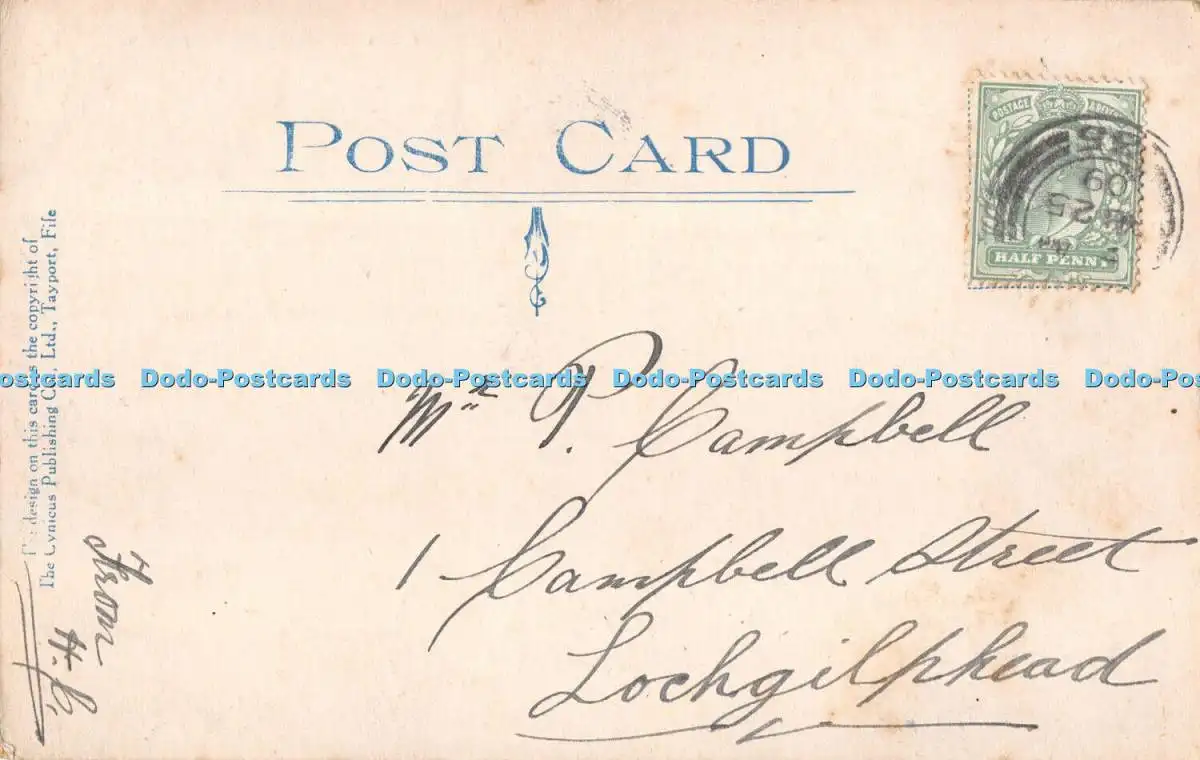 POST CARD
The design on this card is the copyright of
The Cynicus Publishing Co., Ltd., Tayport, Fife
POSTAGE
HALF PENNY
25
09
Dodo-Postcards Dodo-Postcards Dodo-Postcards Dodo-Postcards
Mr P. Campbell
1 Campbell Street
Lochgilphead
From